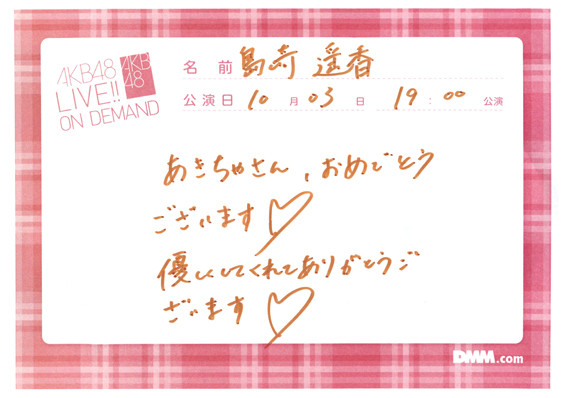 AKB48
LIVE!!
ON DEMAND
AKB
48
名前 島崎 遥香
公演日 10月03日 19:00公演
あきちゃさん、おめでとう
ございます♡
優しくしてくれてありがとうご
ざいます♡
DMM.com